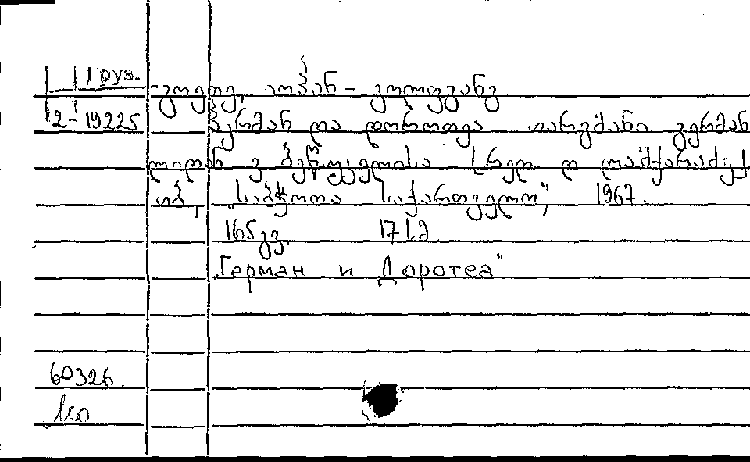 1 груз.
გოეთე, იოჰან - ვოლფგანგ
2-19225
ჰერმან და დოროთეა თარგმანი გერმან
თბ., "საბჭოთა საქართველო", 1967.
165გვ. 17სმ
"Герман и Доротеа"
60326.